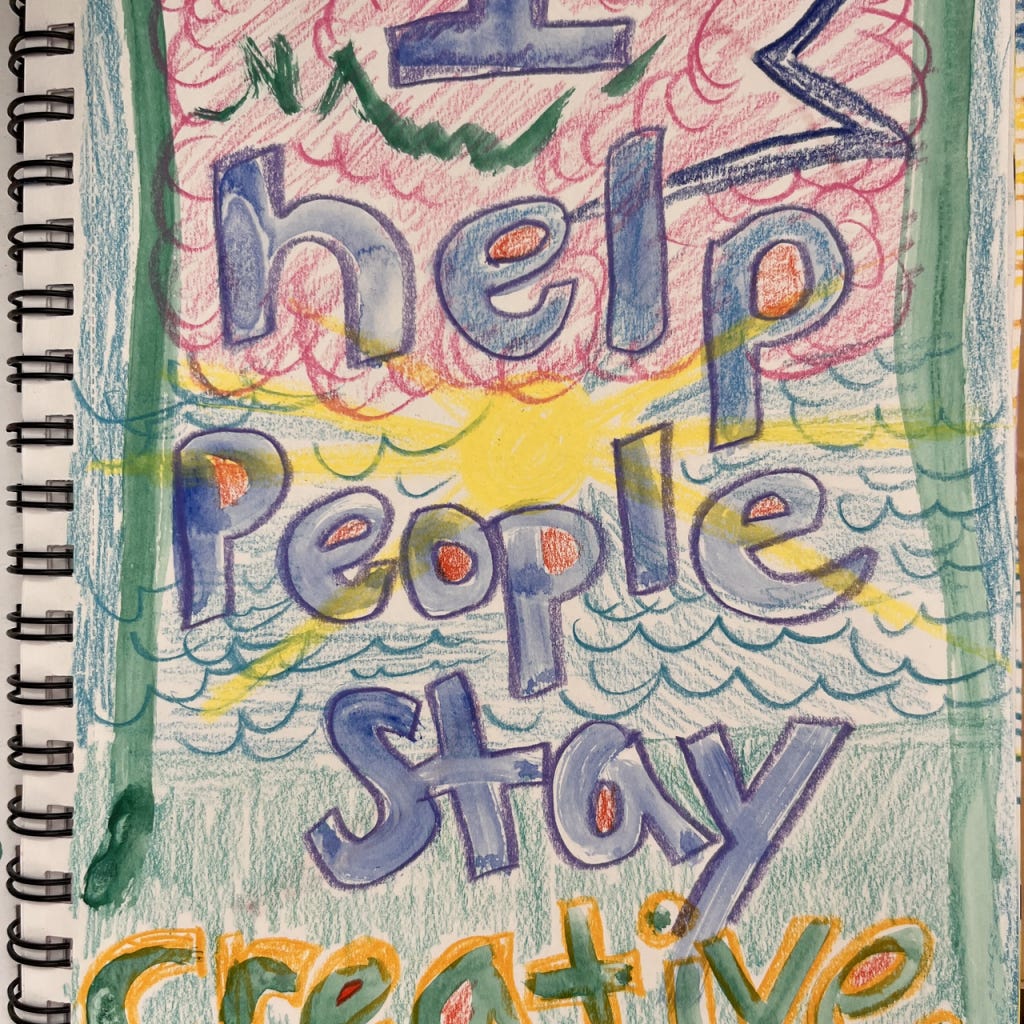 I
help
People
Stay
Creative